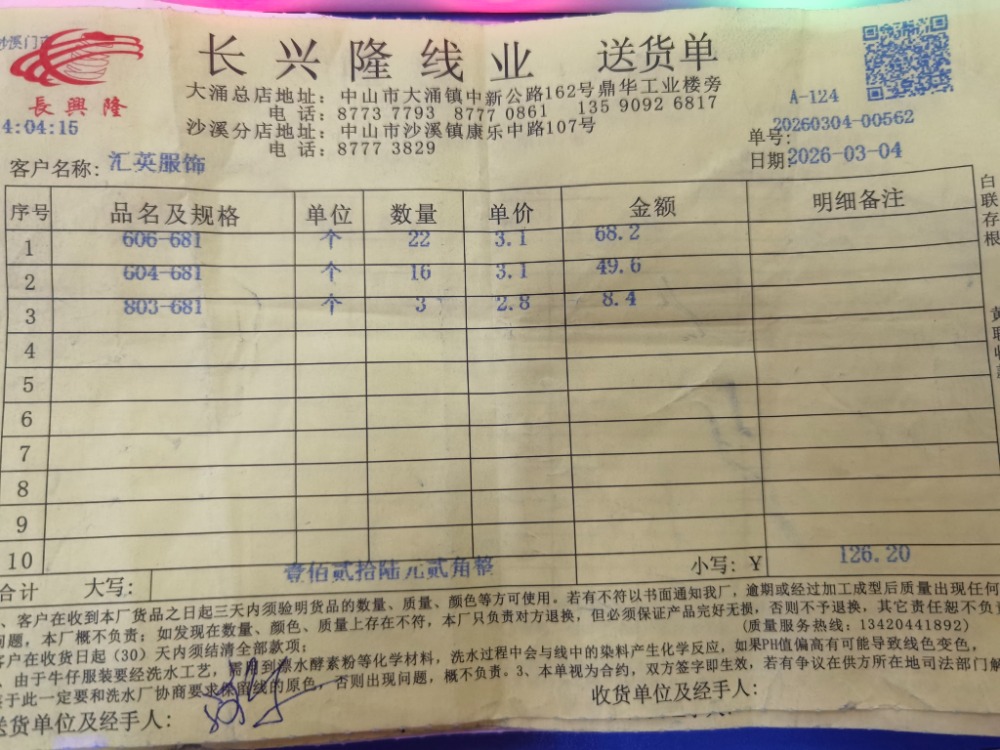 長興隆
长兴隆线业 送货单
大涌总店地址：中山市大涌镇中新公路162号鼎华工业楼旁
电 话：8773 7793 8777 0861 135 9092 6817
沙溪分店地址：中山市沙溪镇康乐中路107号
电 话：8777 3829
4:04:15
A-124
单号：20260304-00562
日期：2026-03-04
客户名称：汇英服饰
序号 品名及规格 单位 数量 单价 金额 明细备注
1 606-681 个 22 3.1 68.2
2 604-681 个 16 3.1 49.6
3 803-681 个 3 2.8 8.4
4
5
6
7
8
9
10
合计 大写：壹佰贰拾陆元贰角整 小写：Y 126.20
、客户在收到本厂货品之日起三天内须验明货品的数量、质量、颜色等方可使用。若有不符以书面通知我厂，逾期或经过加工成型后质量出现任何
问题，本厂概不负责；如发现在数量、颜色、质量上存在不符，本厂只负责对方退换，但必须保证产品完好无损，否则不予退换，其它责任恕不负
客户在收货日起（30）天内须结清全部款项； (质量服务热线：13420441892)
、由于牛仔服装要经洗水工艺，需用到漂水酵素粉等化学材料，洗水过程中会与线中的染料产生化学反应，如果PH值偏高有可能导致线色变色，
于此一定要和洗水厂协商要求保留线的原色，否则出现问题，概不负责。3、本单视为合约，双方签字即生效，若有争议在供方所在地司法部门解
送货单位及经手人： 收货单位及经手人：
白联存根